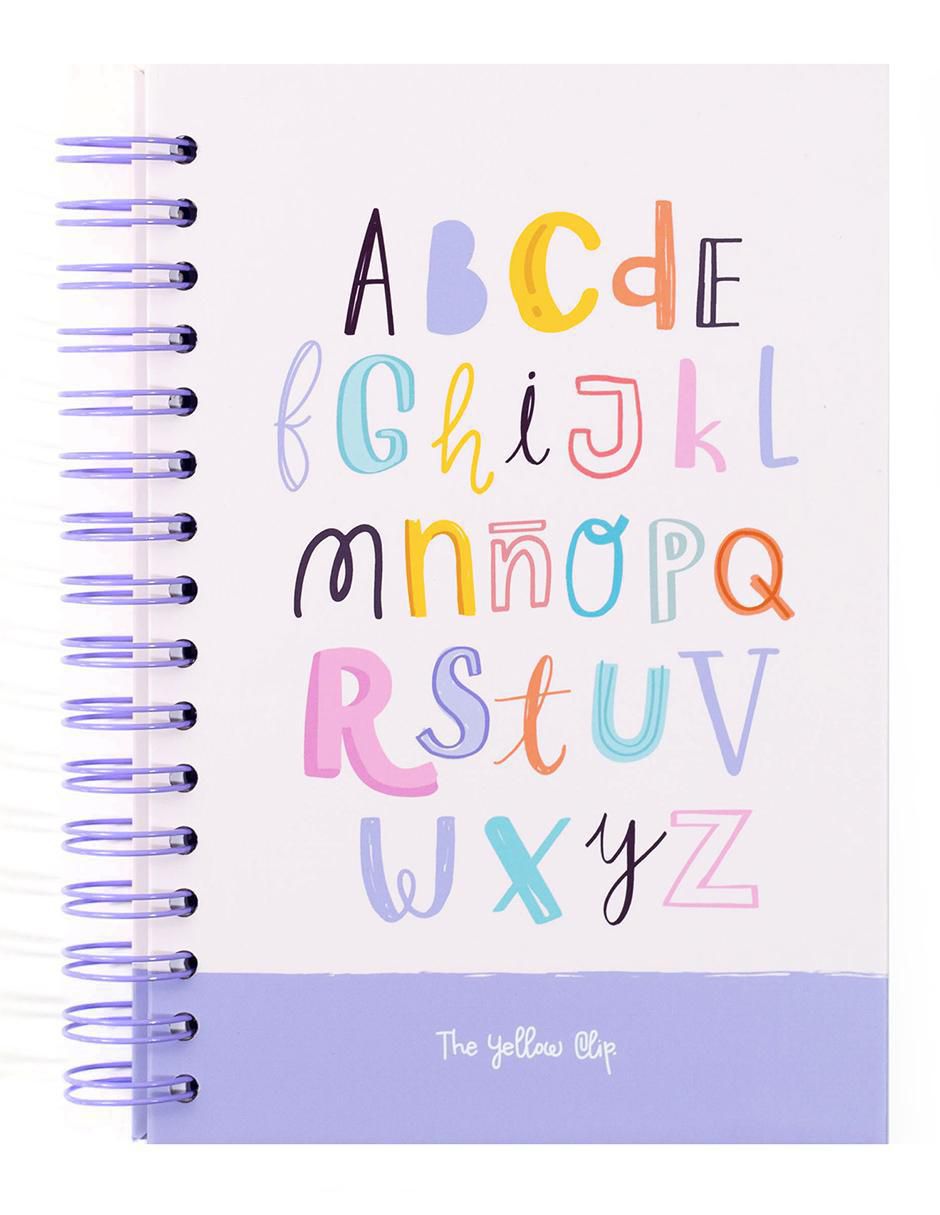 A B C d E
f G h i J k l
m n ñ O P Q
R S t U V
W X y Z
The yellow Clip.